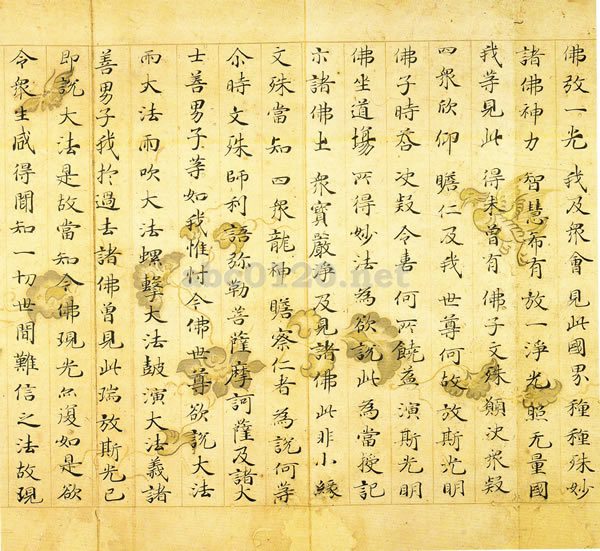 佛放一光 我及衆會 見此國界 種種殊妙
諸佛神力 智慧希有 放一淨光 照无量國
我等見此 得未曾有 佛子文殊 願決衆疑
四衆欣仰 瞻仁及我 世尊何故 放斯光明
佛子時荅 决疑令喜 何所饒益 演斯光明
佛坐道場 所得妙法 為欲說此 為當授記
示諸佛土 衆寶嚴淨 及見諸佛 此非小緣
文殊當知 四衆龍神 瞻察仁者 為說何等
尒時文殊師利語弥勒菩薩摩訶薩及諸大
士善男子等如我惟忖今佛世尊欲說大法
雨大法雨吹大法螺擊大法鼓演大法義諸
善男子我於過去諸佛曽見此瑞放斯光已
即說大法是故當知今佛現光亦復如是欲
令衆生咸得聞知一切世間難信之法故現
abc0120.net